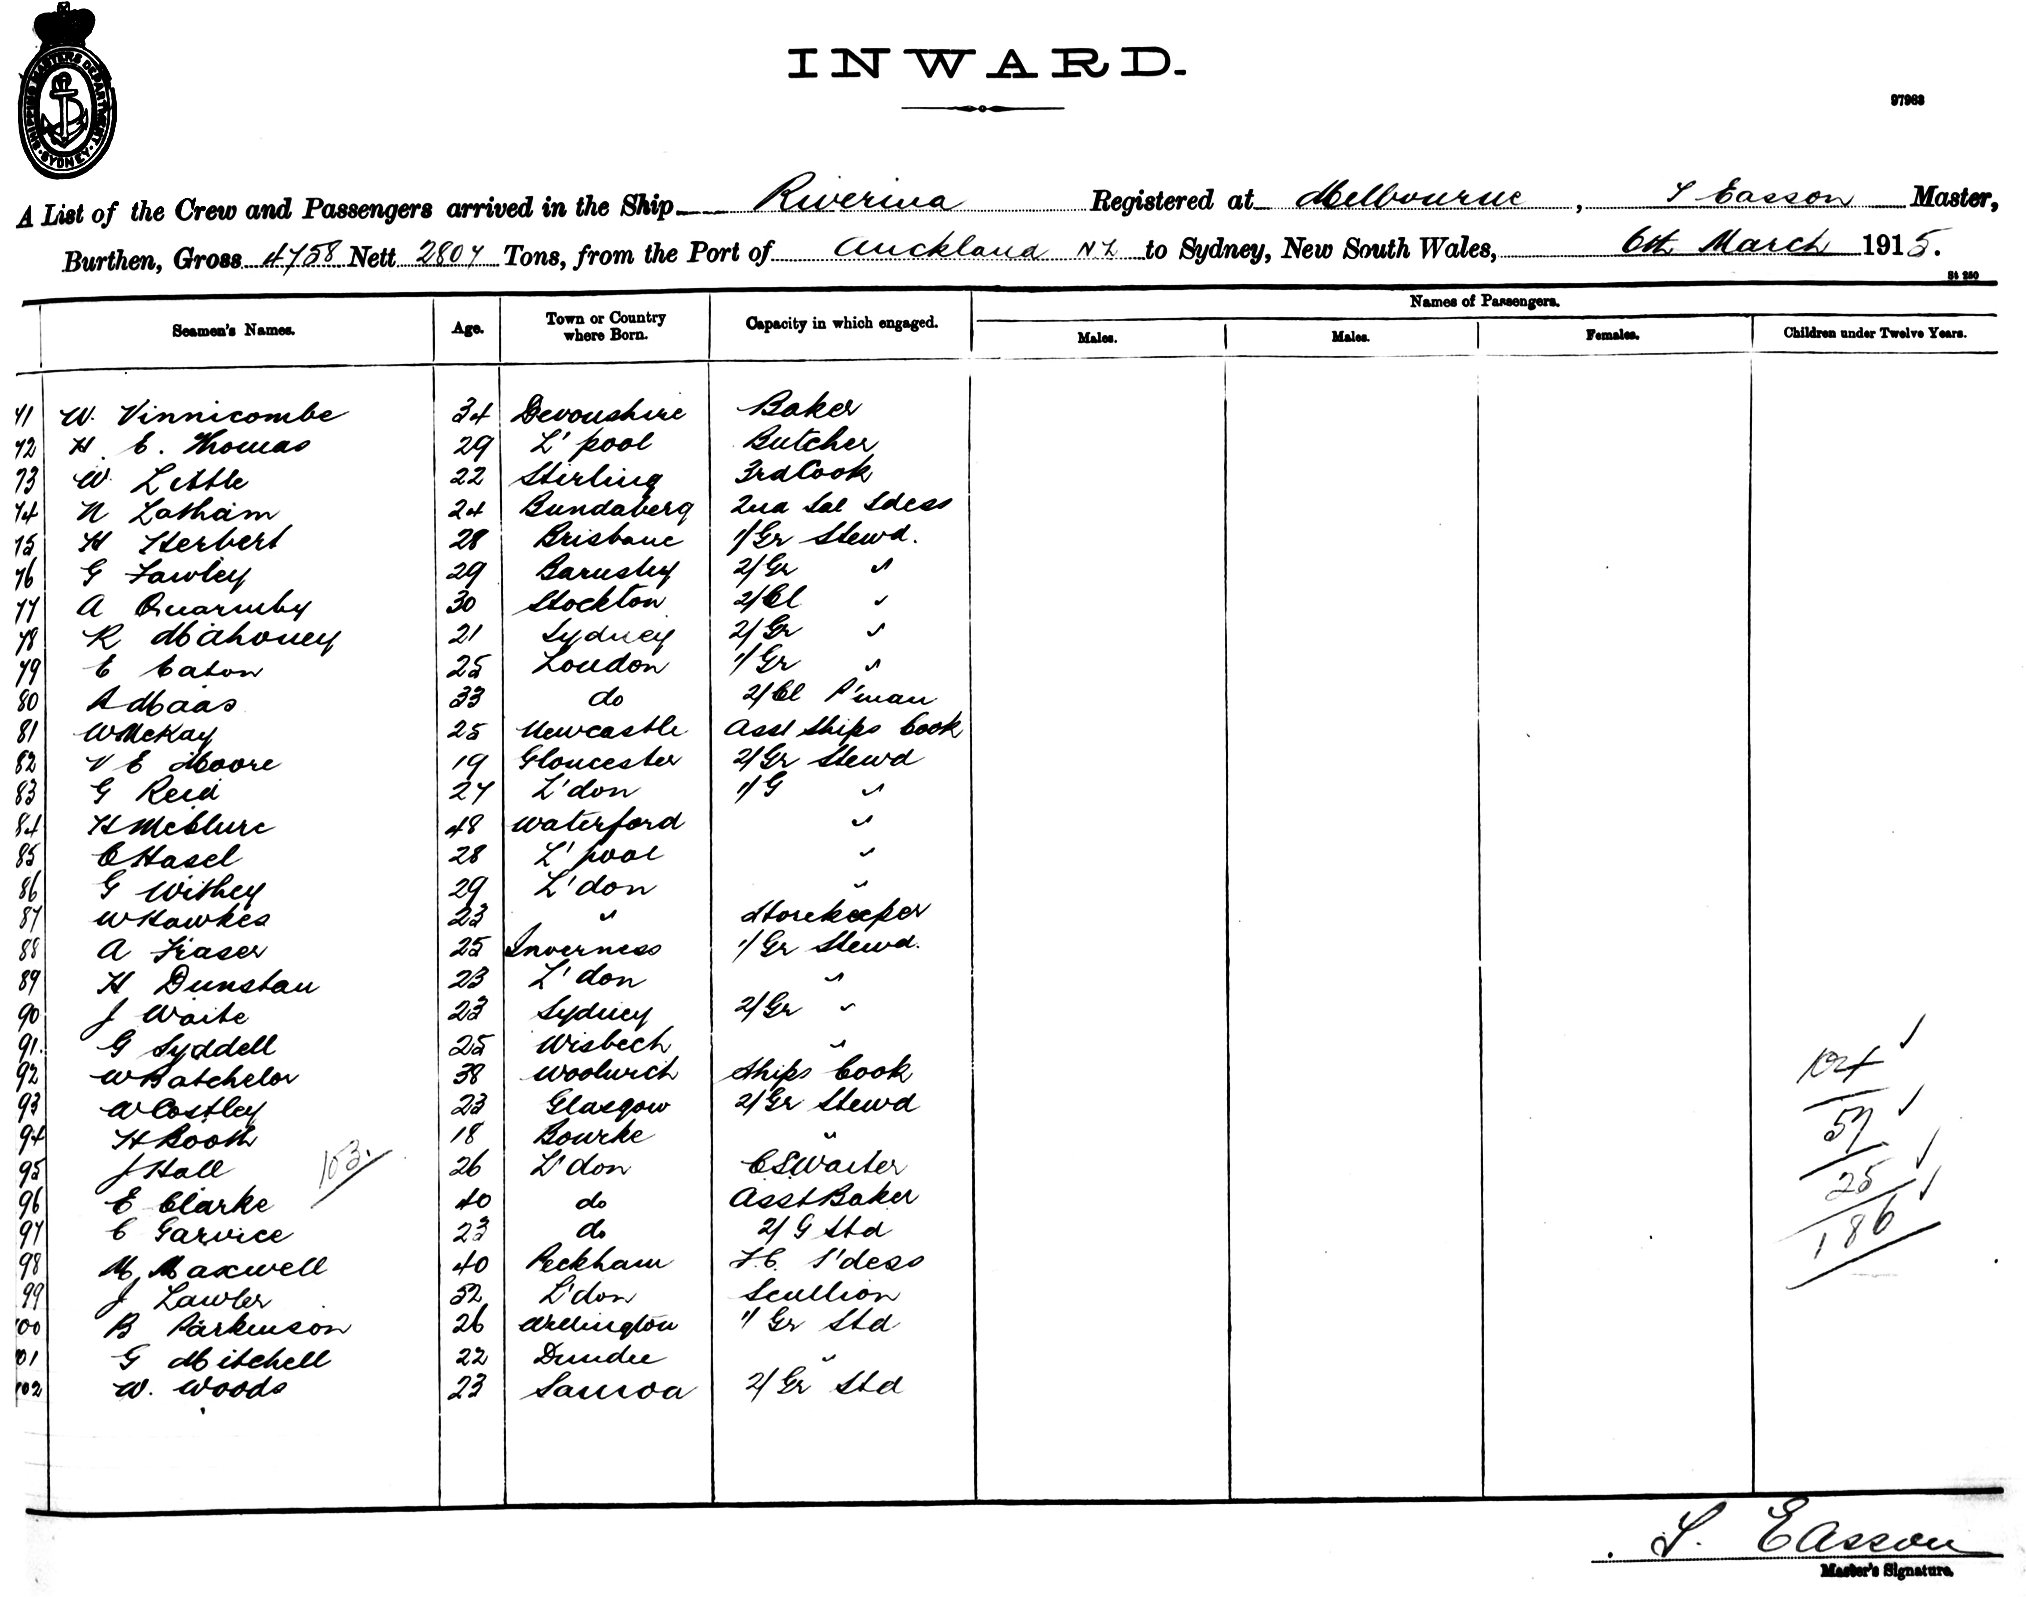 SHIPPING MASTERS DEPARTMENT · SYDNEY ·
INWARD.
97963
A List of the Crew and Passengers arrived in the Ship Riverina Registered at Melbourne, S Easson Master,
Burthen, Gross 4758 Nett 2807 Tons, from the Port of Auckland NZ to Sydney, New South Wales, 6th March 1915.
St 250
Names of Passengers.
Seamen's Names. Age. Town or Country where Born. Capacity in which engaged. Males. Males. Females. Children under Twelve Years.
71 W. Vinnicombe 34 Devonshire Baker
72 H. E. Thomas 29 L'pool Butcher
73 W. Little 22 Stirling 3rd Cook
74 N Latham 24 Bundaberg 2nd Sal Sdess
75 H Herbert 28 Brisbane 1/Gr Stewd.
76 G Fawley 29 Barnsley 2/Gr "
77 A Quarmby 30 Stockton 2/Cl "
78 R Mahoney 21 Sydney 2/Gr "
79 E Eaton 25 London 1/Gr "
80 A Maas 33 do 2/Cl P'man
81 W McKay 25 Newcastle Asst Ships Cook
82 V E Moore 19 Gloucester 2/Gr Stewd
83 G Reid 27 L'don 1/G "
84 H McClure 48 Waterford "
85 C Hasel 28 L'pool "
86 G Withey 29 L'don "
87 W Hawkes 23 " Storekeeper
88 A Fraser 25 Inverness 1/Gr Stewd.
89 H Dunstan 23 L'don "
90 J Waite 23 Sydney 2/Gr "
91. G Syddell 25 Wisbech "
92 W Batchelor 38 Woolwich Ships Cook
93 W Costley 23 Glasgow 2/Gr Stewd
94 H Booth 18 Bourke "
95 J Hall 26 L'don CSWaiter
96 E Clarke 40 do Asst Baker
97 C Garvice 23 do 2/G Std
98 M. Maxwell 40 Peckham F.C. S'dess
99 J Lawler 52 L'don Scullion
100 B Parkinson 26 1/Gr Std
101 G Mitchell 22 Dundee "
102 W. Woods 23 Samoa 2/Gr Std
103.
104
57
25
186
S. Easson
Master's Signature.